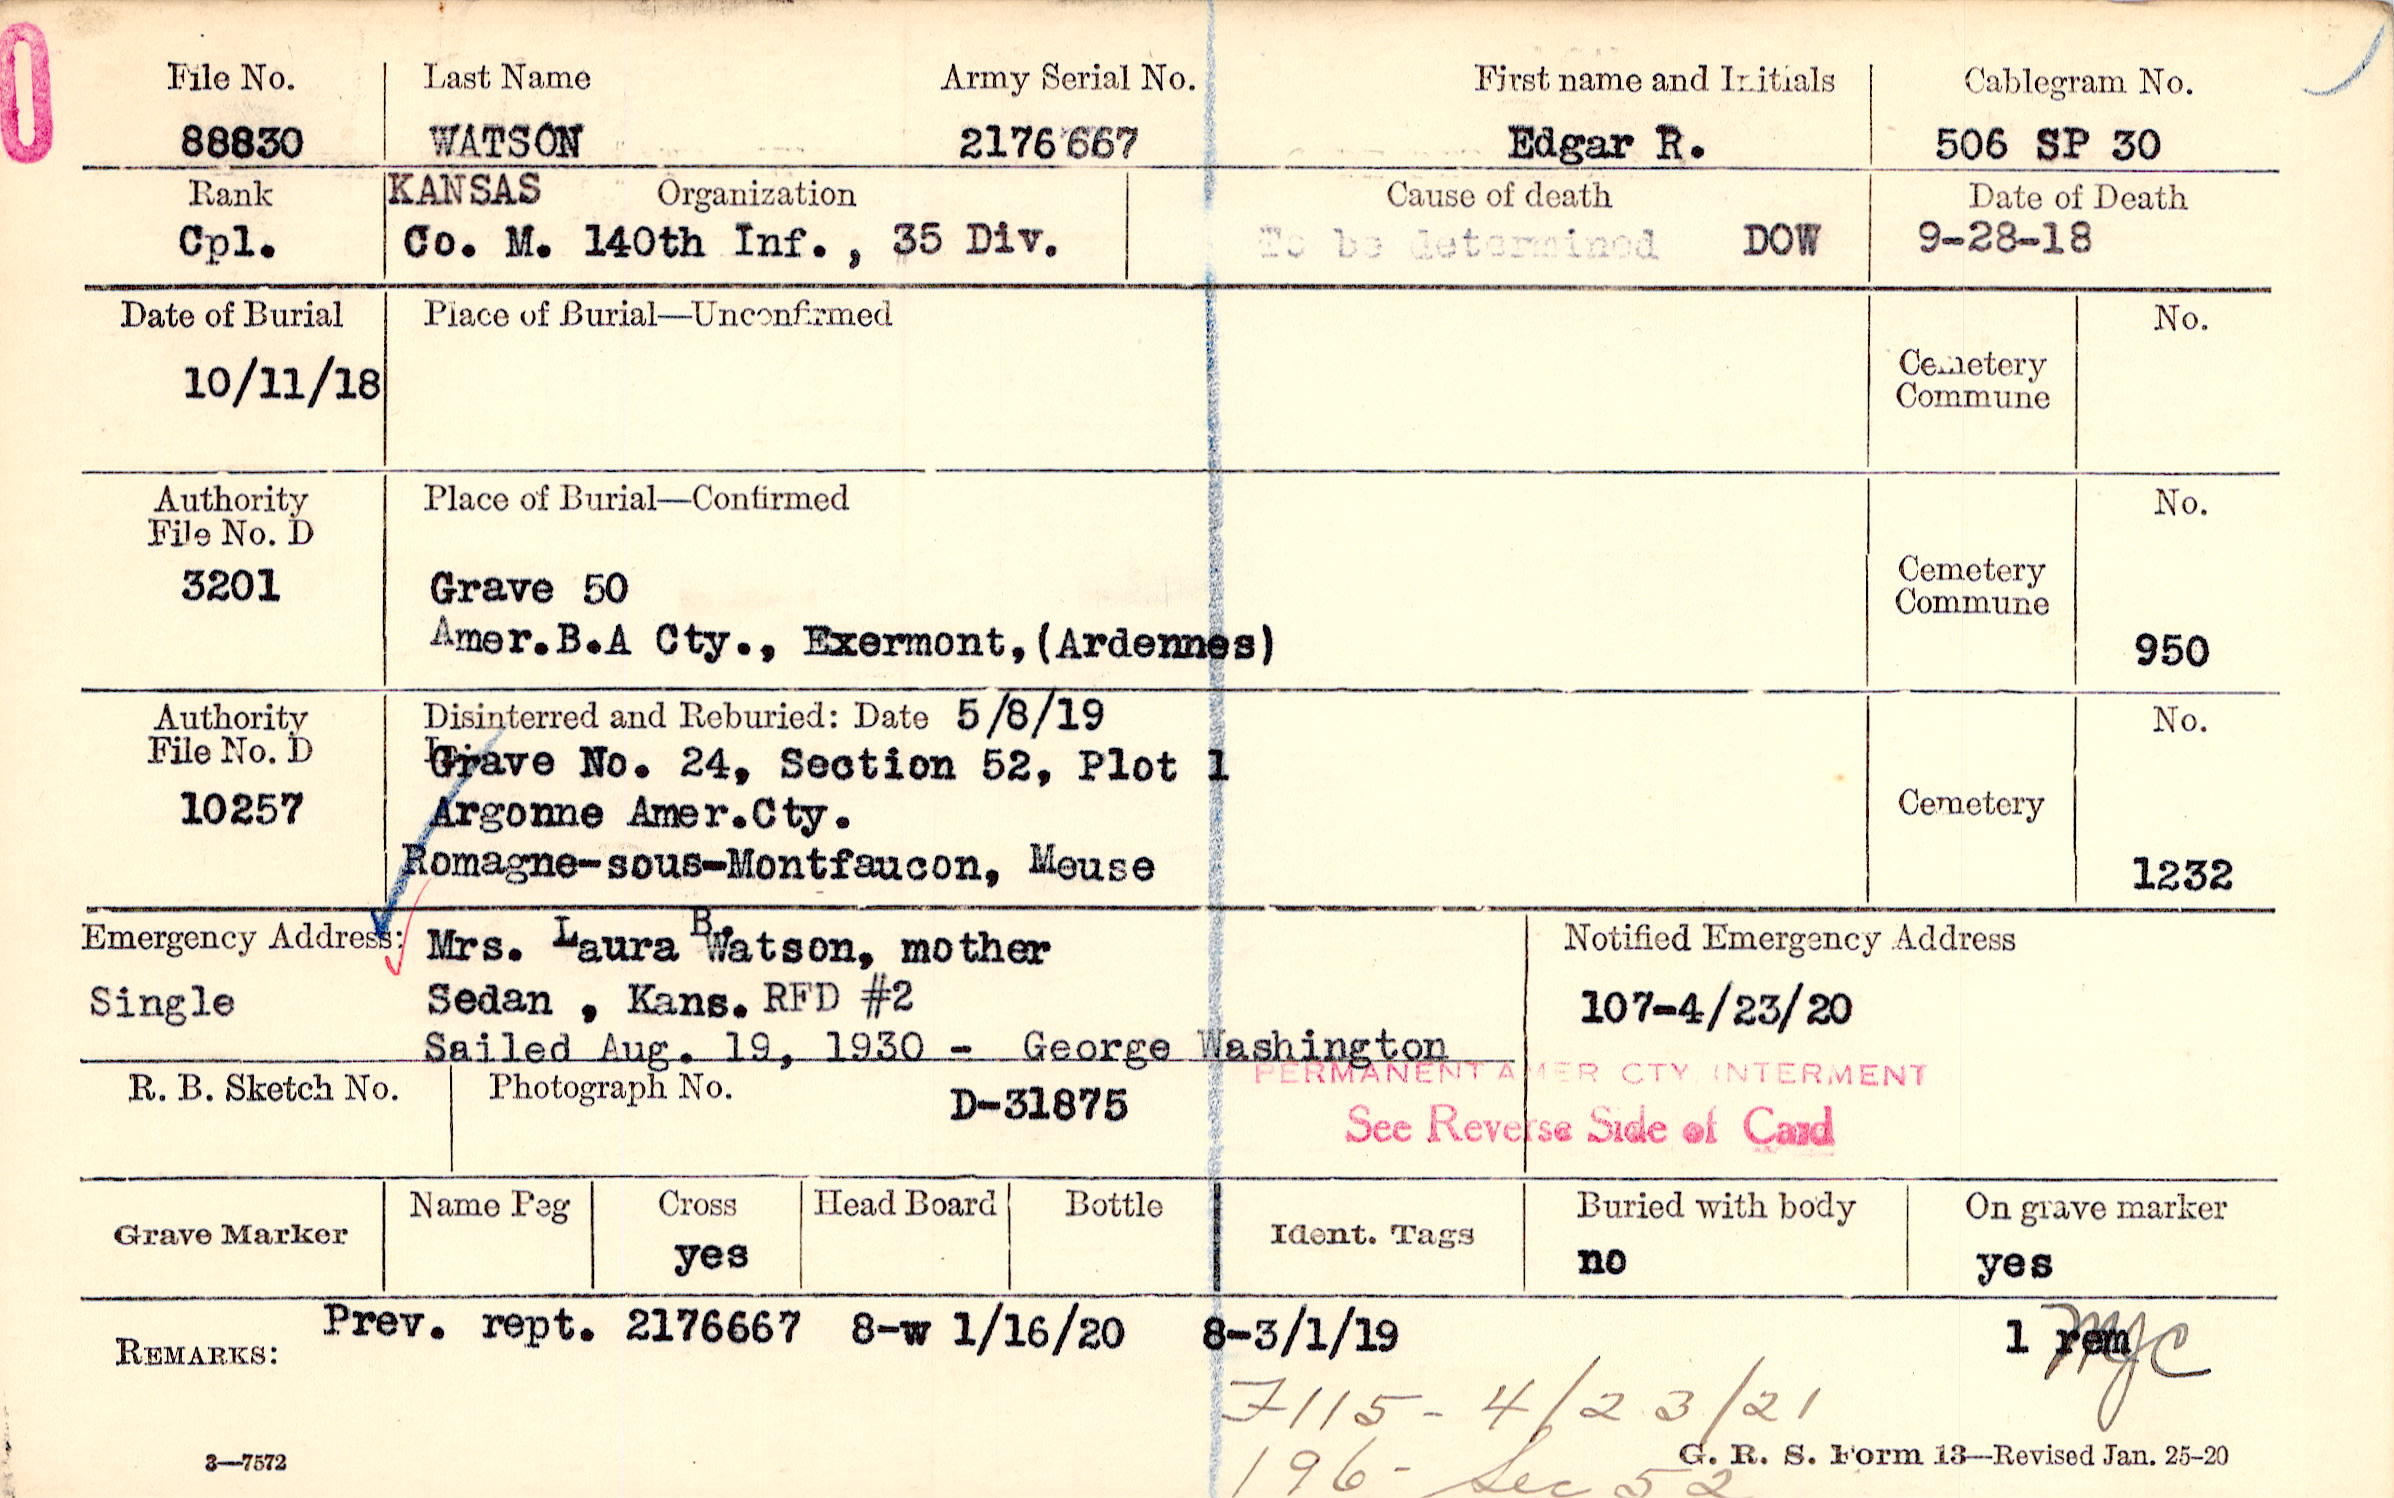 File No. Last Name Army Serial No. First name and Initials Cablegram No.
88830 WATSON 2176667 Edgar R. 506 SP 30
Rank KANSAS Organization Cause of death Date of Death
Cpl. Co. M. 140th Inf., 35 Div. To be determined DOW 9-28-18
Date of Burial Place of Burial—Unconfirmed No.
10/11/18 Cemetery
Commune
Authority Place of Burial—Confirmed No.
File No. D
3201 Grave 50 Cemetery
Commune
Amer.B.A Cty., Exermont,(Ardennes) 950
Authority Disinterred and Reburied: Date 5/8/19 No.
File No. D Grave No. 24, Section 52, Plot 1
10257 Argonne Amer.Cty. Cemetery
Romagne-sous-Montfaucon, Meuse 1232
Emergency Address: Mrs. Laura B. Watson, mother Notified Emergency Address
Single Sedan , Kans. RFD #2 107-4/23/20
Sailed Aug. 19, 1930 - George Washington
PERMANENT AMER CTY INTERMENT
R. B. Sketch No. Photograph No. D-31875
See Reverse Side of Card
Grave Marker Name Peg Cross Head Board Bottle Ident. Tags Buried with body On grave marker
yes no yes
REMARKS: Prev. rept. 2176667 8-w 1/16/20 8-3/1/19 1 rem MJC
7115- 4/23/21
196- Sec 52
3—7572 G. R. S. Form 13—Revised Jan. 25-20